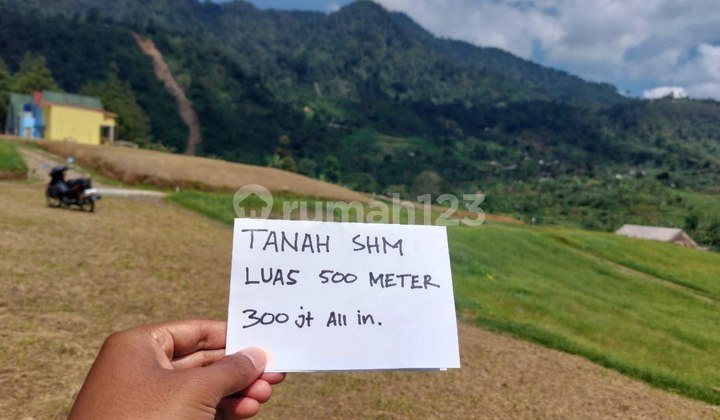 rumah123
TANAH SHM
LUAS 500 METER
300 jt All in.